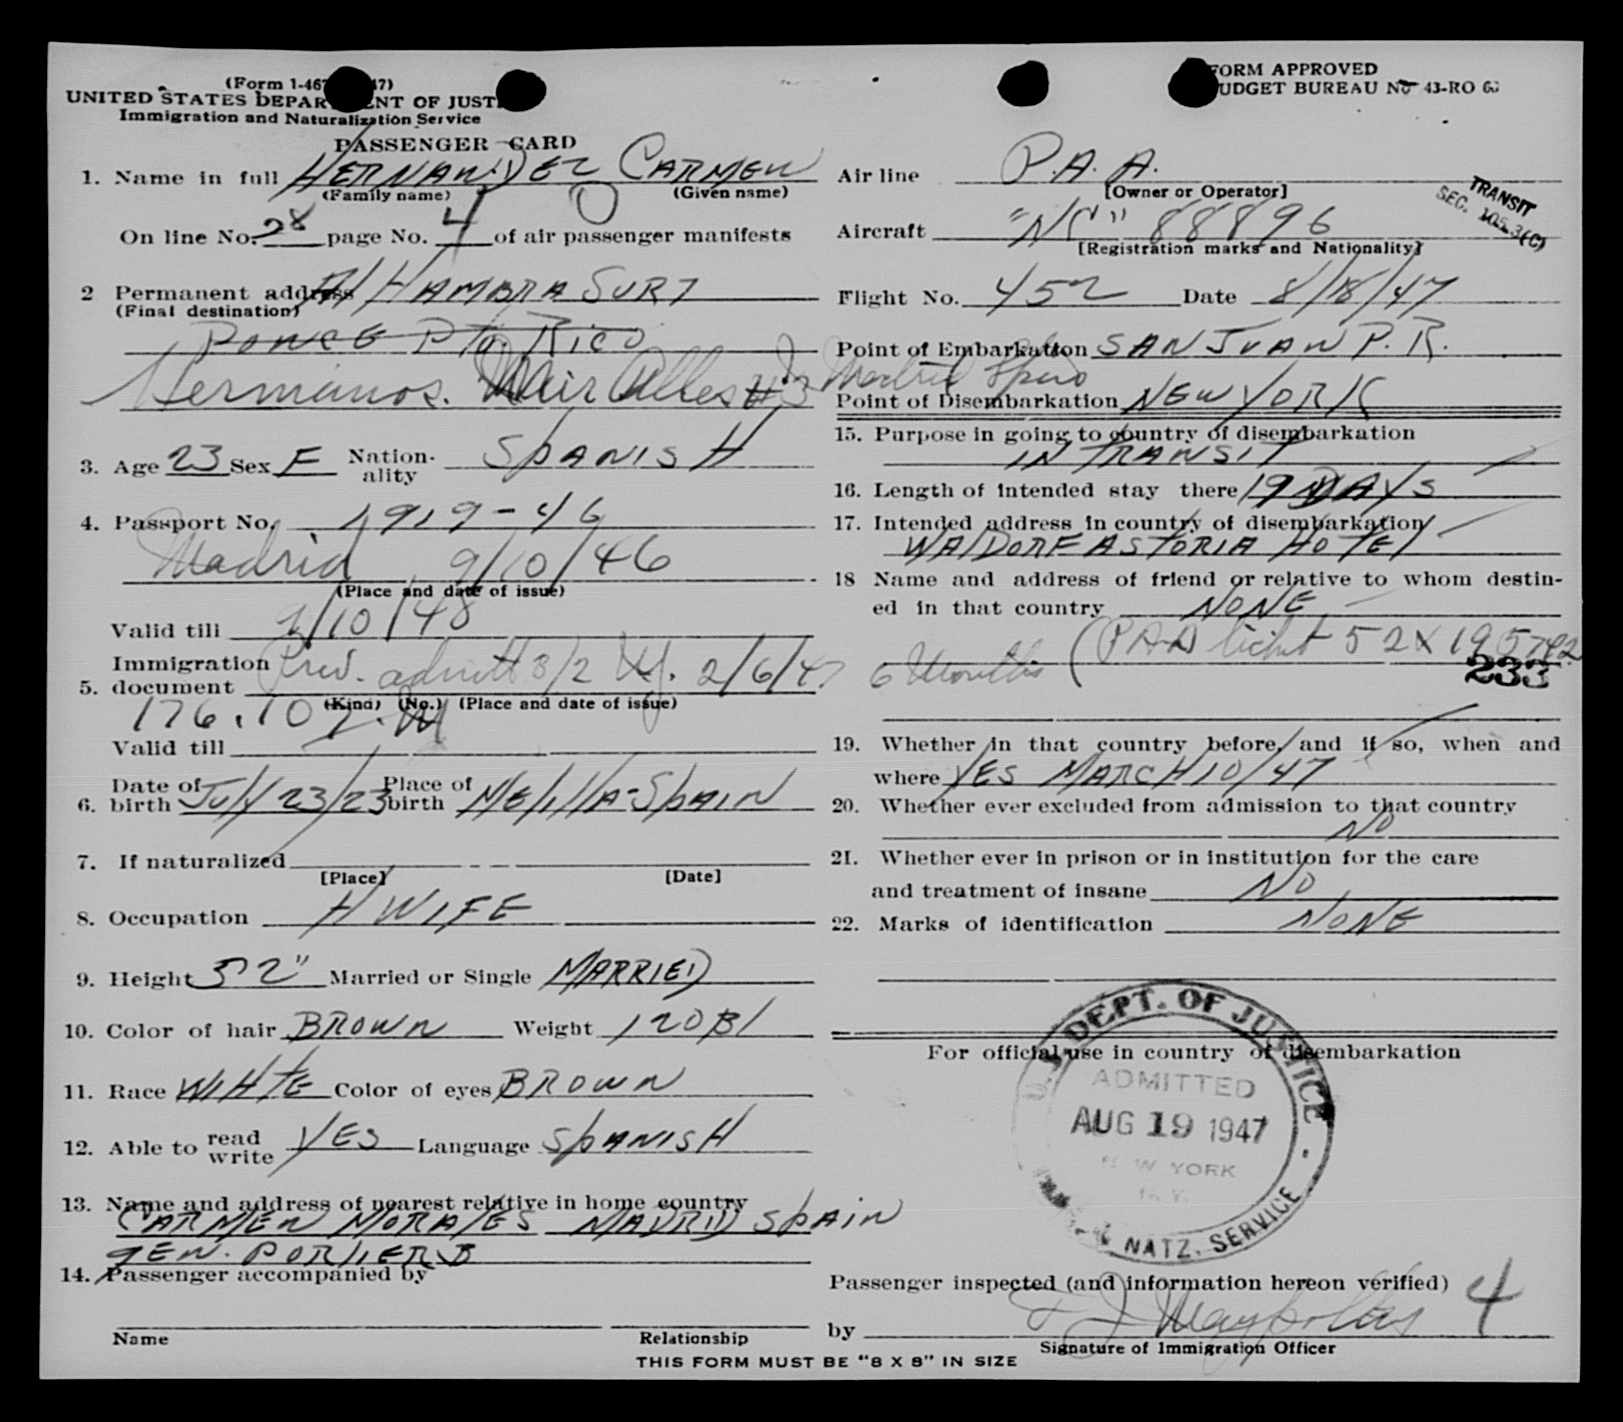 (Form 1-46 47)
UNITED STATES DEPAR ENT OF JUST
Immigration and Naturalization Service
PASSENGER CARD
FORM APPROVED
UDGET BUREAU No 43-RO
1. Name in full HERNANDEZ CARMEN
(Family name) (Given name)
On line No. 28 page No. 4 of air passenger manifests
2 Permanent address AlHAMBRA SUR 7
(Final destination)
PONCE Pto. RICO
Hermanos. #3 Madrid
3. Age 23 Sex F Nation-ality SpANISH
4. Passport No. 1919-46
Madrid 9/10/46
(Place and date of issue)
Valid till 9/10/48
Immigration
5. document Prev. admitt 3/2 NY. 2/6/47
(Kind) (No.) (Place and date of issue)
176.10
Valid till
6. Date of birth July 23/23 Place of birth MElillA-SpAIN
7. If naturalized
[Place] [Date]
8. Occupation HWIFE
9. Height 5'2" Married or Single MARRIED
10. Color of hair BROWN Weight 120
11. Race WHITE Color of eyes BROWN
12. Able to read write YES Language SpANISH
13. Name and address of nearest relative in home country
CARMEN MORAlES MADRID SpAIN
GEN. PORlIER
14. Passenger accompanied by
Name Relationship
Air line P.A.A.
[Owner or Operator]
TRANSIT
SEC. 105.3(C)
Aircraft "NC" 88896
[Registration marks and Nationality]
Flight No. 452 Date 8/18/47
Point of Embarkation SAN JUAN P.R.
Point of Disembarkation NEW YORK
15. Purpose in going to country of disembarkation
IN TRANSIT
16. Length of intended stay there 19 DAYS
17. Intended address in country of disembarkation
WAlDORF ASTORIA HOTEl
18 Name and address of friend or relative to whom destin-
ed in that country NONE
6 Months (PAA ticket 52X195792
233
19. Whether in that country before, and if so, when and
where YES MARCH 10/47
20. Whether ever excluded from admission to that country
NO
21. Whether ever in prison or in institution for the care
and treatment of insane NO
22. Marks of identification NONE
For official use in country of disembarkation
U.S. DEPT. OF JUSTICE
ADMITTED
AUG 19 1947
NEW YORK
N.Y.
NATZ. SERVICE
Passenger inspected (and information hereon verified) 4
by
Signature of Immigration Officer
THIS FORM MUST BE "8 X 8" IN SIZE